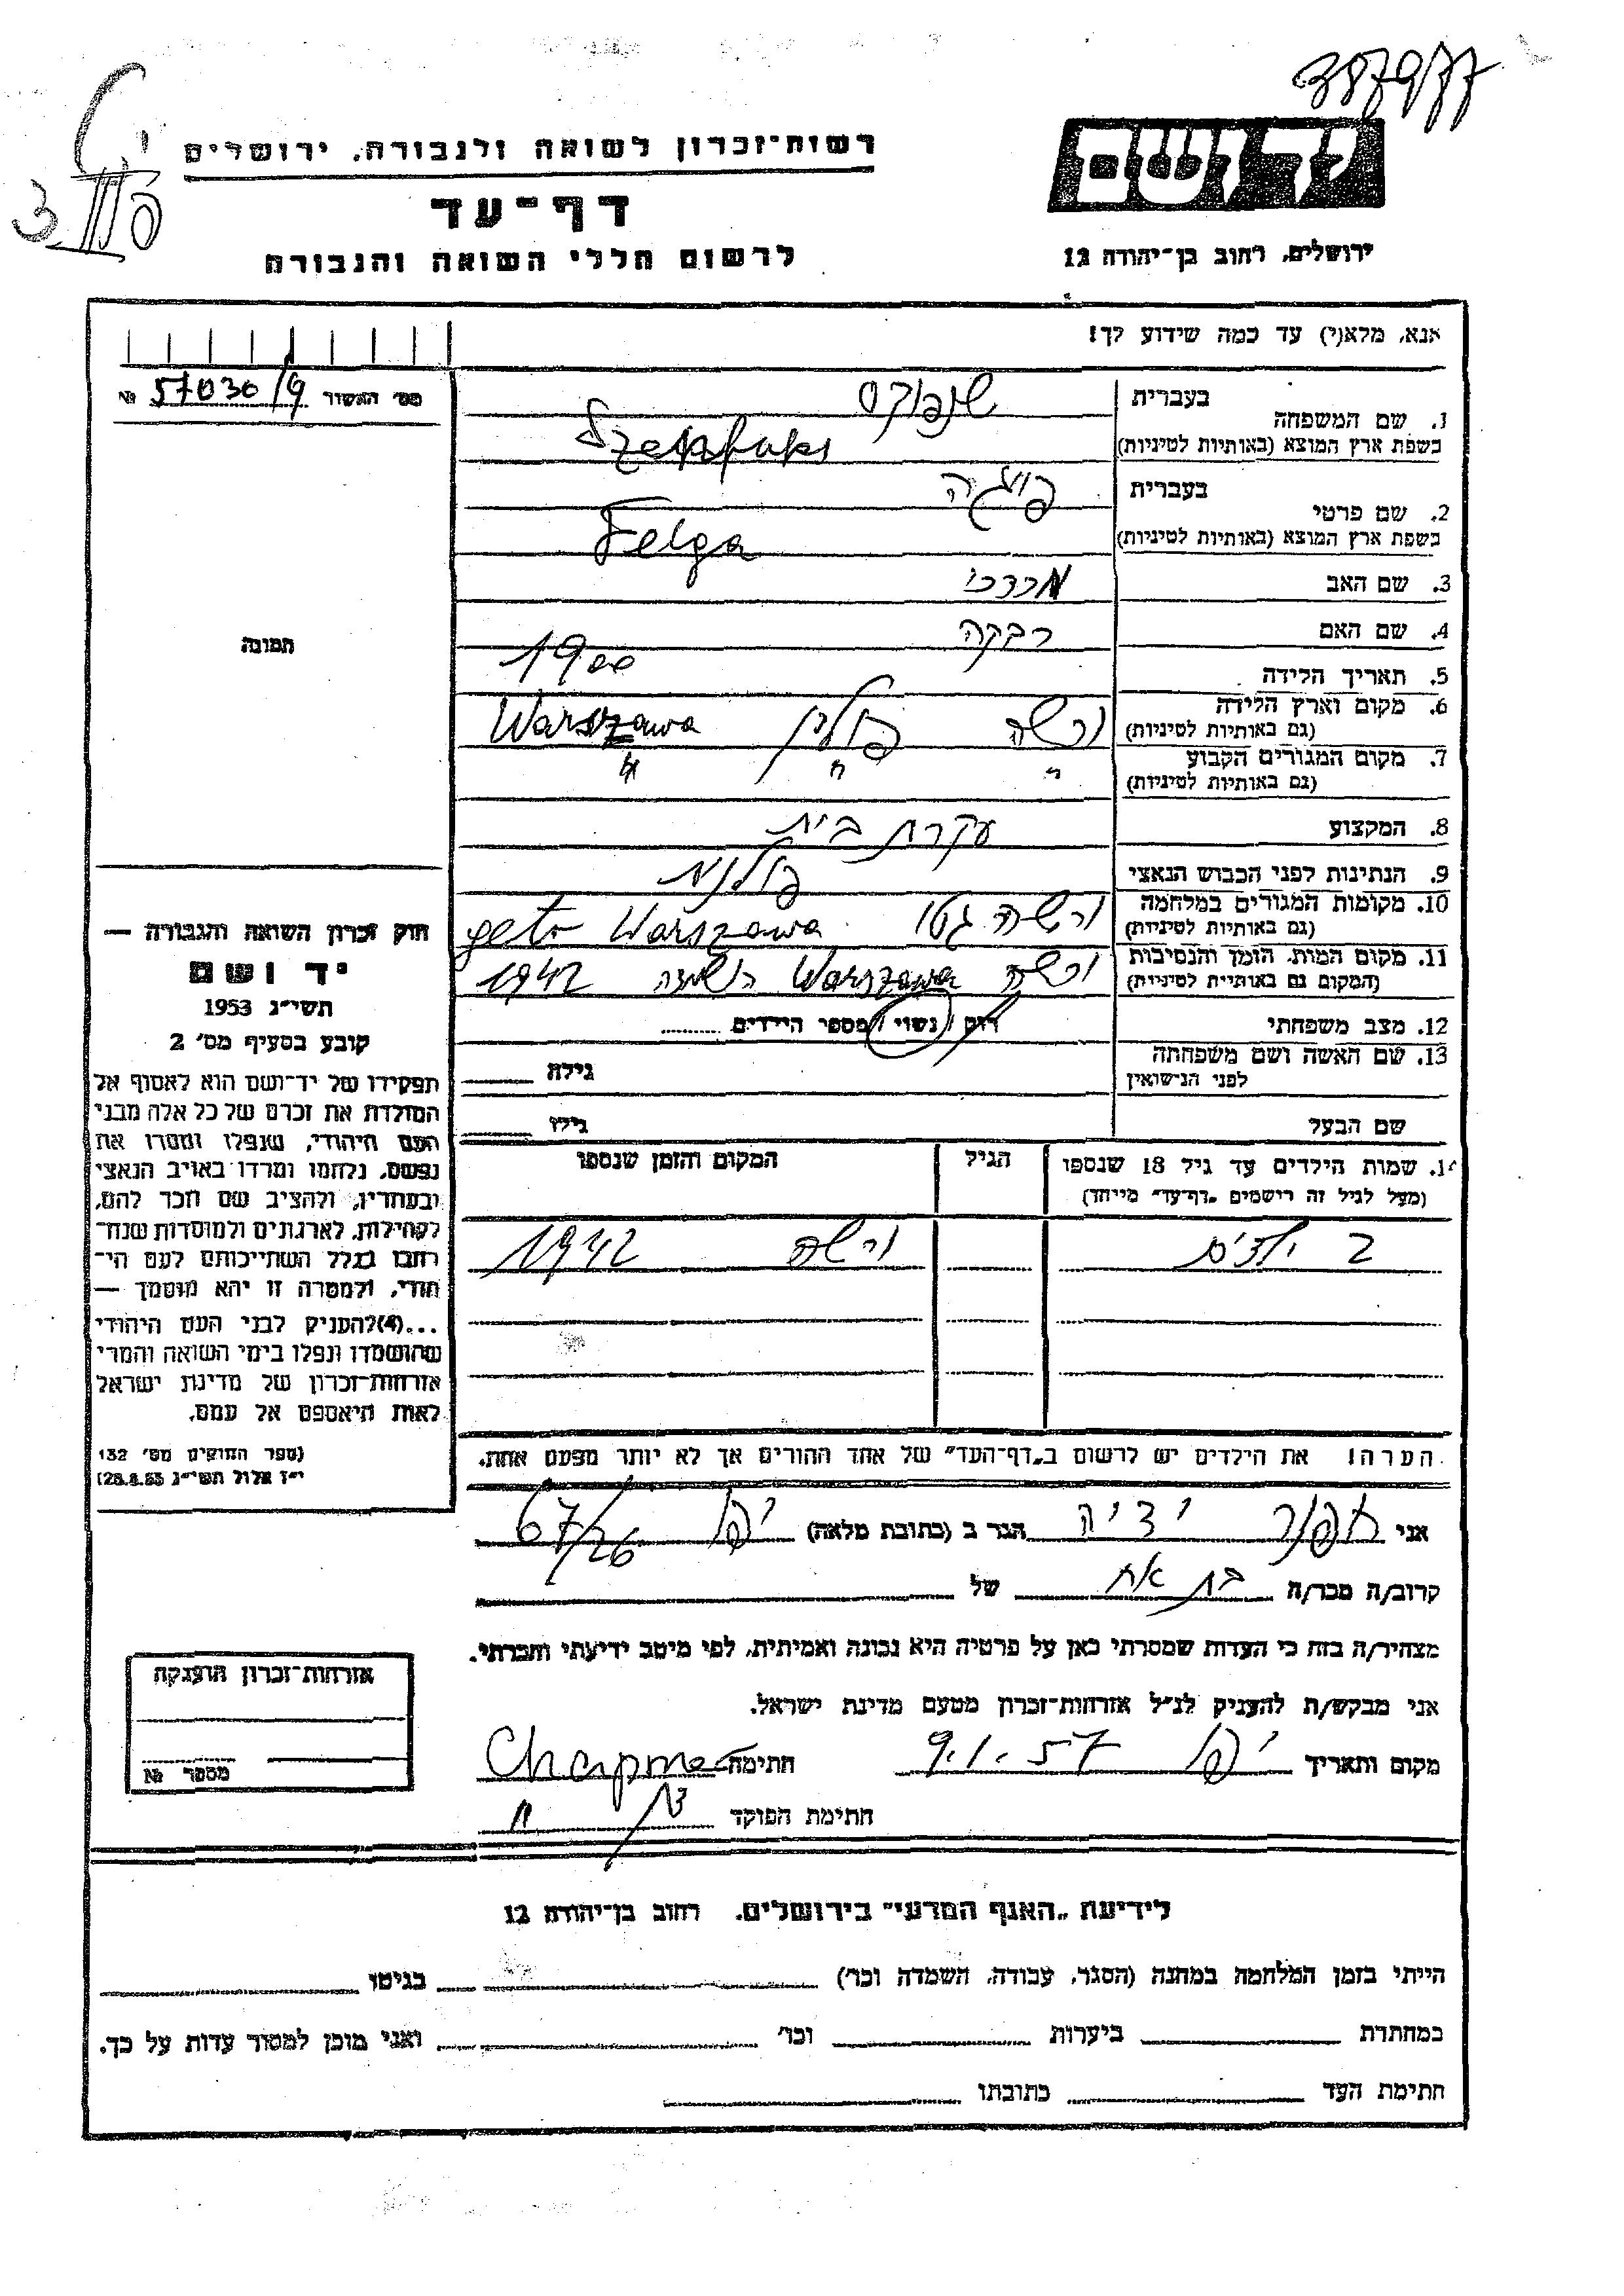 387977
רשות־זכרון לשואה ולגבורה, ירושלים
דף־עד
לרשום חללי השואה והגבורה
יד ושם
ירושלים, רחוב בן־יהודה 12
אנא, מלא(י) עד כמה שידוע לך!
מס׳ האשור 57030/9 №
תמונה
1. שם המשפחה בעברית
בשפת ארץ המוצא (באותיות לטיניות)
2. שם פרטי בעברית פייגה
בשפת ארץ המוצא (באותיות לטיניות) Felga
3. שם האב מרדכי
4. שם האם רבקה
5. תאריך הלידה 1900
6. מקום וארץ הלידה (גם באותיות לטיניות) ורשה פולין Warszawa
7. מקום המגורים הקבוע (גם באותיות לטיניות) " " "
8. המקצוע עקרת בית
9. הנתינות לפני הכבוש הנאצי פולנית
10. מקומות המגורים במלחמה (גם באותיות לטיניות) ורשה גטו geto Warszawa
11. מקום המות, הזמן והנסיבות (המקום גם באותיות לטיניות) ורשה Warszawa השמדה 1942
12. מצב משפחתי רווק / נשוי / מספר הילדים
13. שם האשה ושם משפחתה לפני הנישואין גילה
שם הבעל גילו
14. שמות הילדים עד גיל 18 שנספו (מעל לגיל זה רישמים „דף־עד" מייחד) הגיל המקום והזמן שנספו
2 ילדים ורשה 1942
הערה! את הילדים יש לרשום ב„דף־העד" של אחד ההורים אך לא יותר מפעם אחת.
חוק זכרון השואה והגבורה —
יד ושם
תשי״ג 1953
קובע בסעיף מס׳ 2
תפקידו של יד־ושם הוא לאסוף אל
המולדת את זכרם של כל אלה מבני
העם היהודי, שנפלו ומסרו את
נפשם, נלחמו ומרדו באויב הנאצי
ובעוזריו, ולהציב שם וזכר להם,
לקהילות, לארגונים ולמוסדות שנח־
רבו בגלל השתייכותם לעם הי־
הודי, ולמטרה זו יהא מוסמך —
...(4) להעניק לבני העם היהודי
שהושמדו ונפלו בימי השואה והמרי
אזרחות־זכרון של מדינת ישראל
לאות היאספם אל עמם.
(ספר החוקים מס׳ 132
י״ז אלול תשי״ג 28.8.53)
אני הגר ב (כתובת מלאה) יפו 67/26
קרוב/ה מכר/ה בת אח של
מצהיר/ה בזה כי העדות שמסרתי כאן על פרטיה היא נכונה ואמיתית, לפי מיטב ידיעתי והכרתי.
אני מבקש/ת להעניק לנ״ל אזרחות־זכרון מטעם מדינת ישראל.
מקום ותאריך יפו 9.1.57 חתימה
חתימת הפוקד
אזרחות־זכרון הוענקה
מספר №
לידיעת „האגף המדעי" בירושלים, רחוב בן־יהודה 12
הייתי בזמן המלחמה במחנה (הסגר, עבודה, השמדה וכר) בגיטו
במחתרת ביערות וכר ואני מוכן למסור עדות על כך.
חתימת העד כתובתו